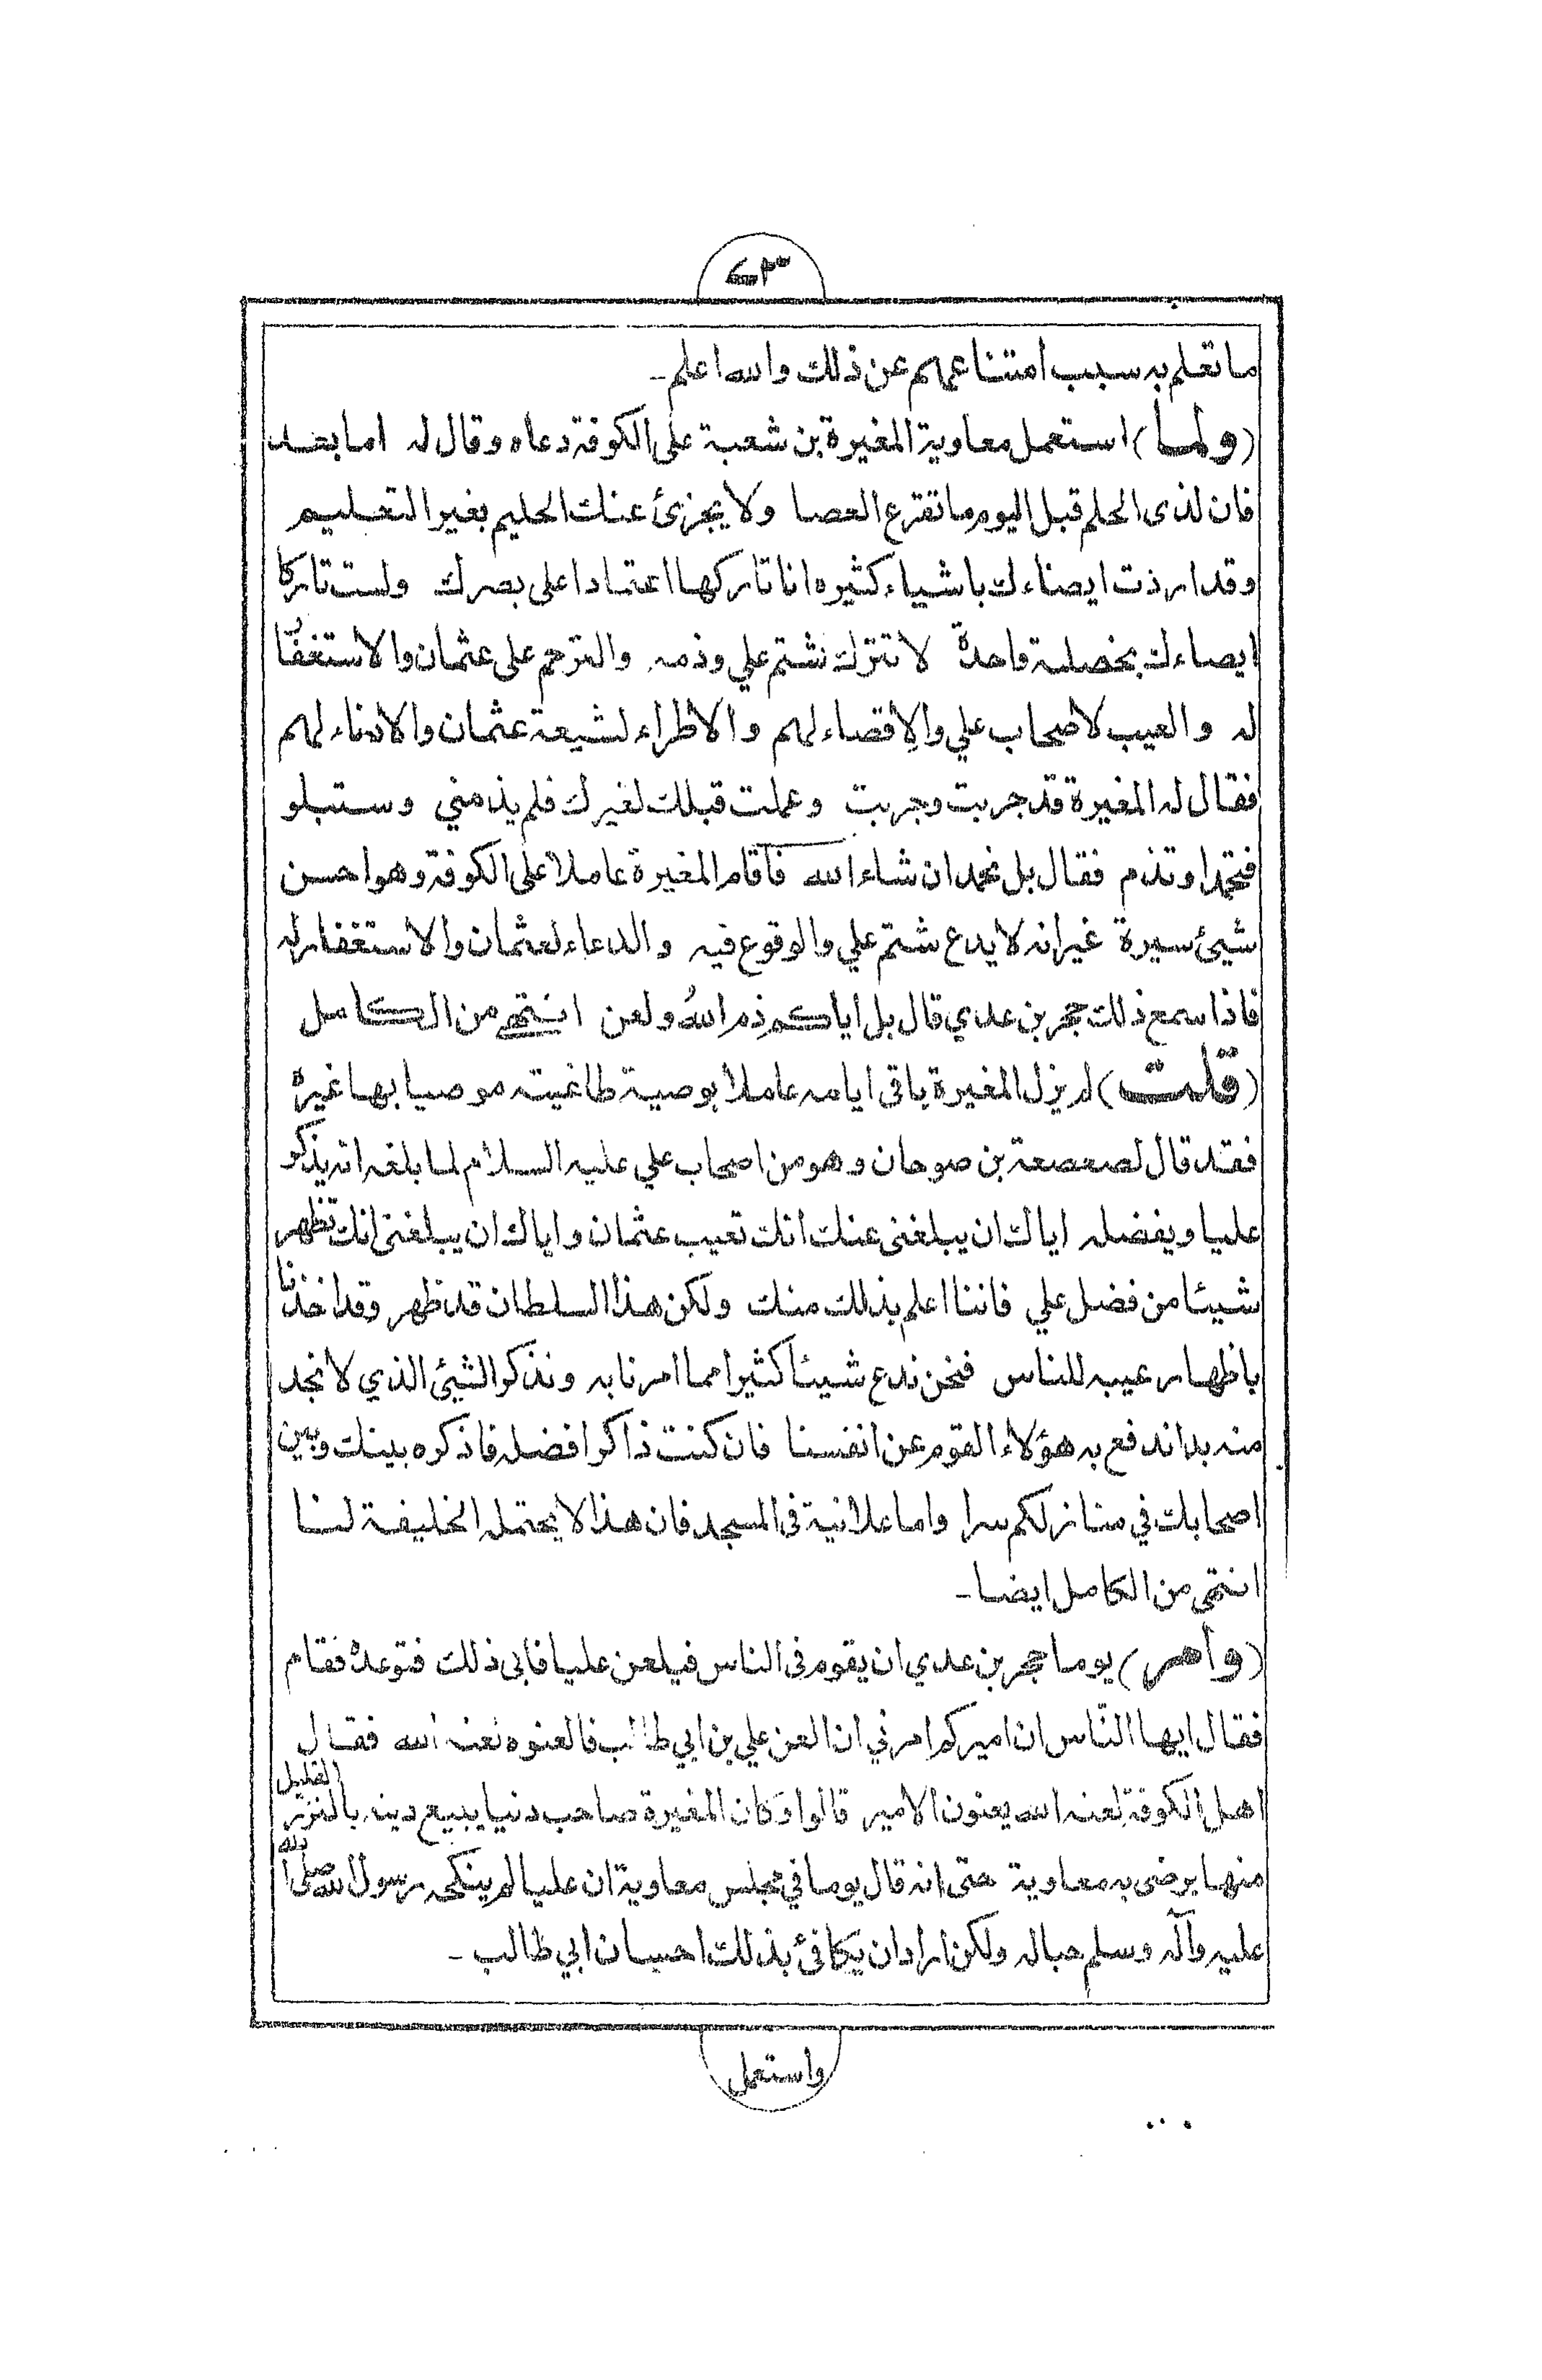 ٧٣
ما تعلم به سبب امتناعهم عن ذلك والله اعلم-
(ولما) استعمل معاوية المغيرة بن شعبة على الكوفة دعاه وقال له اما بعد
فان لذى الحلم قبل اليوم ما تقرع العصا ولا يجزئ عنك الحليم بغير التعليم
وقد اردت ايصاءك باشياء كثيره انا تاركها اعتمادا على بصرك ولست تاركا
ايصاءك بخصلة واحدة لا تترك شتم علي وذمه والترحم على عثمان والاستغفار
له والعيب لاصحاب علي والاقصاء لهم والاطراء لشيعة عثمان والادناء لهم
فقال له المغيرة قد جربت وجربت وعملت قبلك لغيرك فلم يذمني وستبلو
فتحمد اوتذم فقال بل نحمد ان شاء الله فاقام المغيرة عاملا على الكوفة وهو احسن
شيئ سيرة غير انه لا يدع شتم علي والوقوع فيه والدعاء لعثمان والاستغفار له
فاذا سمع ذلك حجر بن عدي قال بل اياكم ذم الله ولعن انتهى من الكامل
(قلت) لم يزل المغيرة باقى ايامه عاملا بوصية طاغيته موصيا بها غيره
فقد قال لصعصعة بن صوحان وهو من اصحاب علي عليه السلام لما بلغه انه يذكر
عليا ويفضله اياك ان يبلغنى عنك انك تعيب عثمان واياك ان يبلغنى انك تظهر
شيئا من فضل علي فاننا اعلم بذلك منك ولكن هذا السلطان قد ظهر وقد اخذنا
باظهار عيبه للناس فنحن ندع شيئا كثيرا مما امرنا به ونذكر الشيئ الذي لا نجد
منه بدا ندفع به هؤلاء القوم عن انفسنا فان كنت ذاكرا فضله فاذكره بينك وبين
اصحابك في منازلكم سرا واما علانية فى المسجد فان هذا لا يحتمله الخليفة لنا
انتهى من الكامل ايضا-
(وأمر) يوما حجر بن عدي ان يقوم فى الناس فيلعن عليا فابى ذلك فتوعده فقام
فقال ايها الناس ان اميركم امرني ان العن علي بن ابي طالب فالعنوه لعنه الله فقال
اهل الكوفة لعنه الله يعنون الامير قالوا وكان المغيرة صاحب دنيا يبيع دينه بالنزر القليل
منها يرضى به معاوية حتى انه قال يوما في مجلس معاوية ان عليا لم ينكحه رسول الله صلى الله
عليه وآله وسلم حبا له ولكن اراد ان يكافئ بذلك احسان ابي طالب -
واستعمل